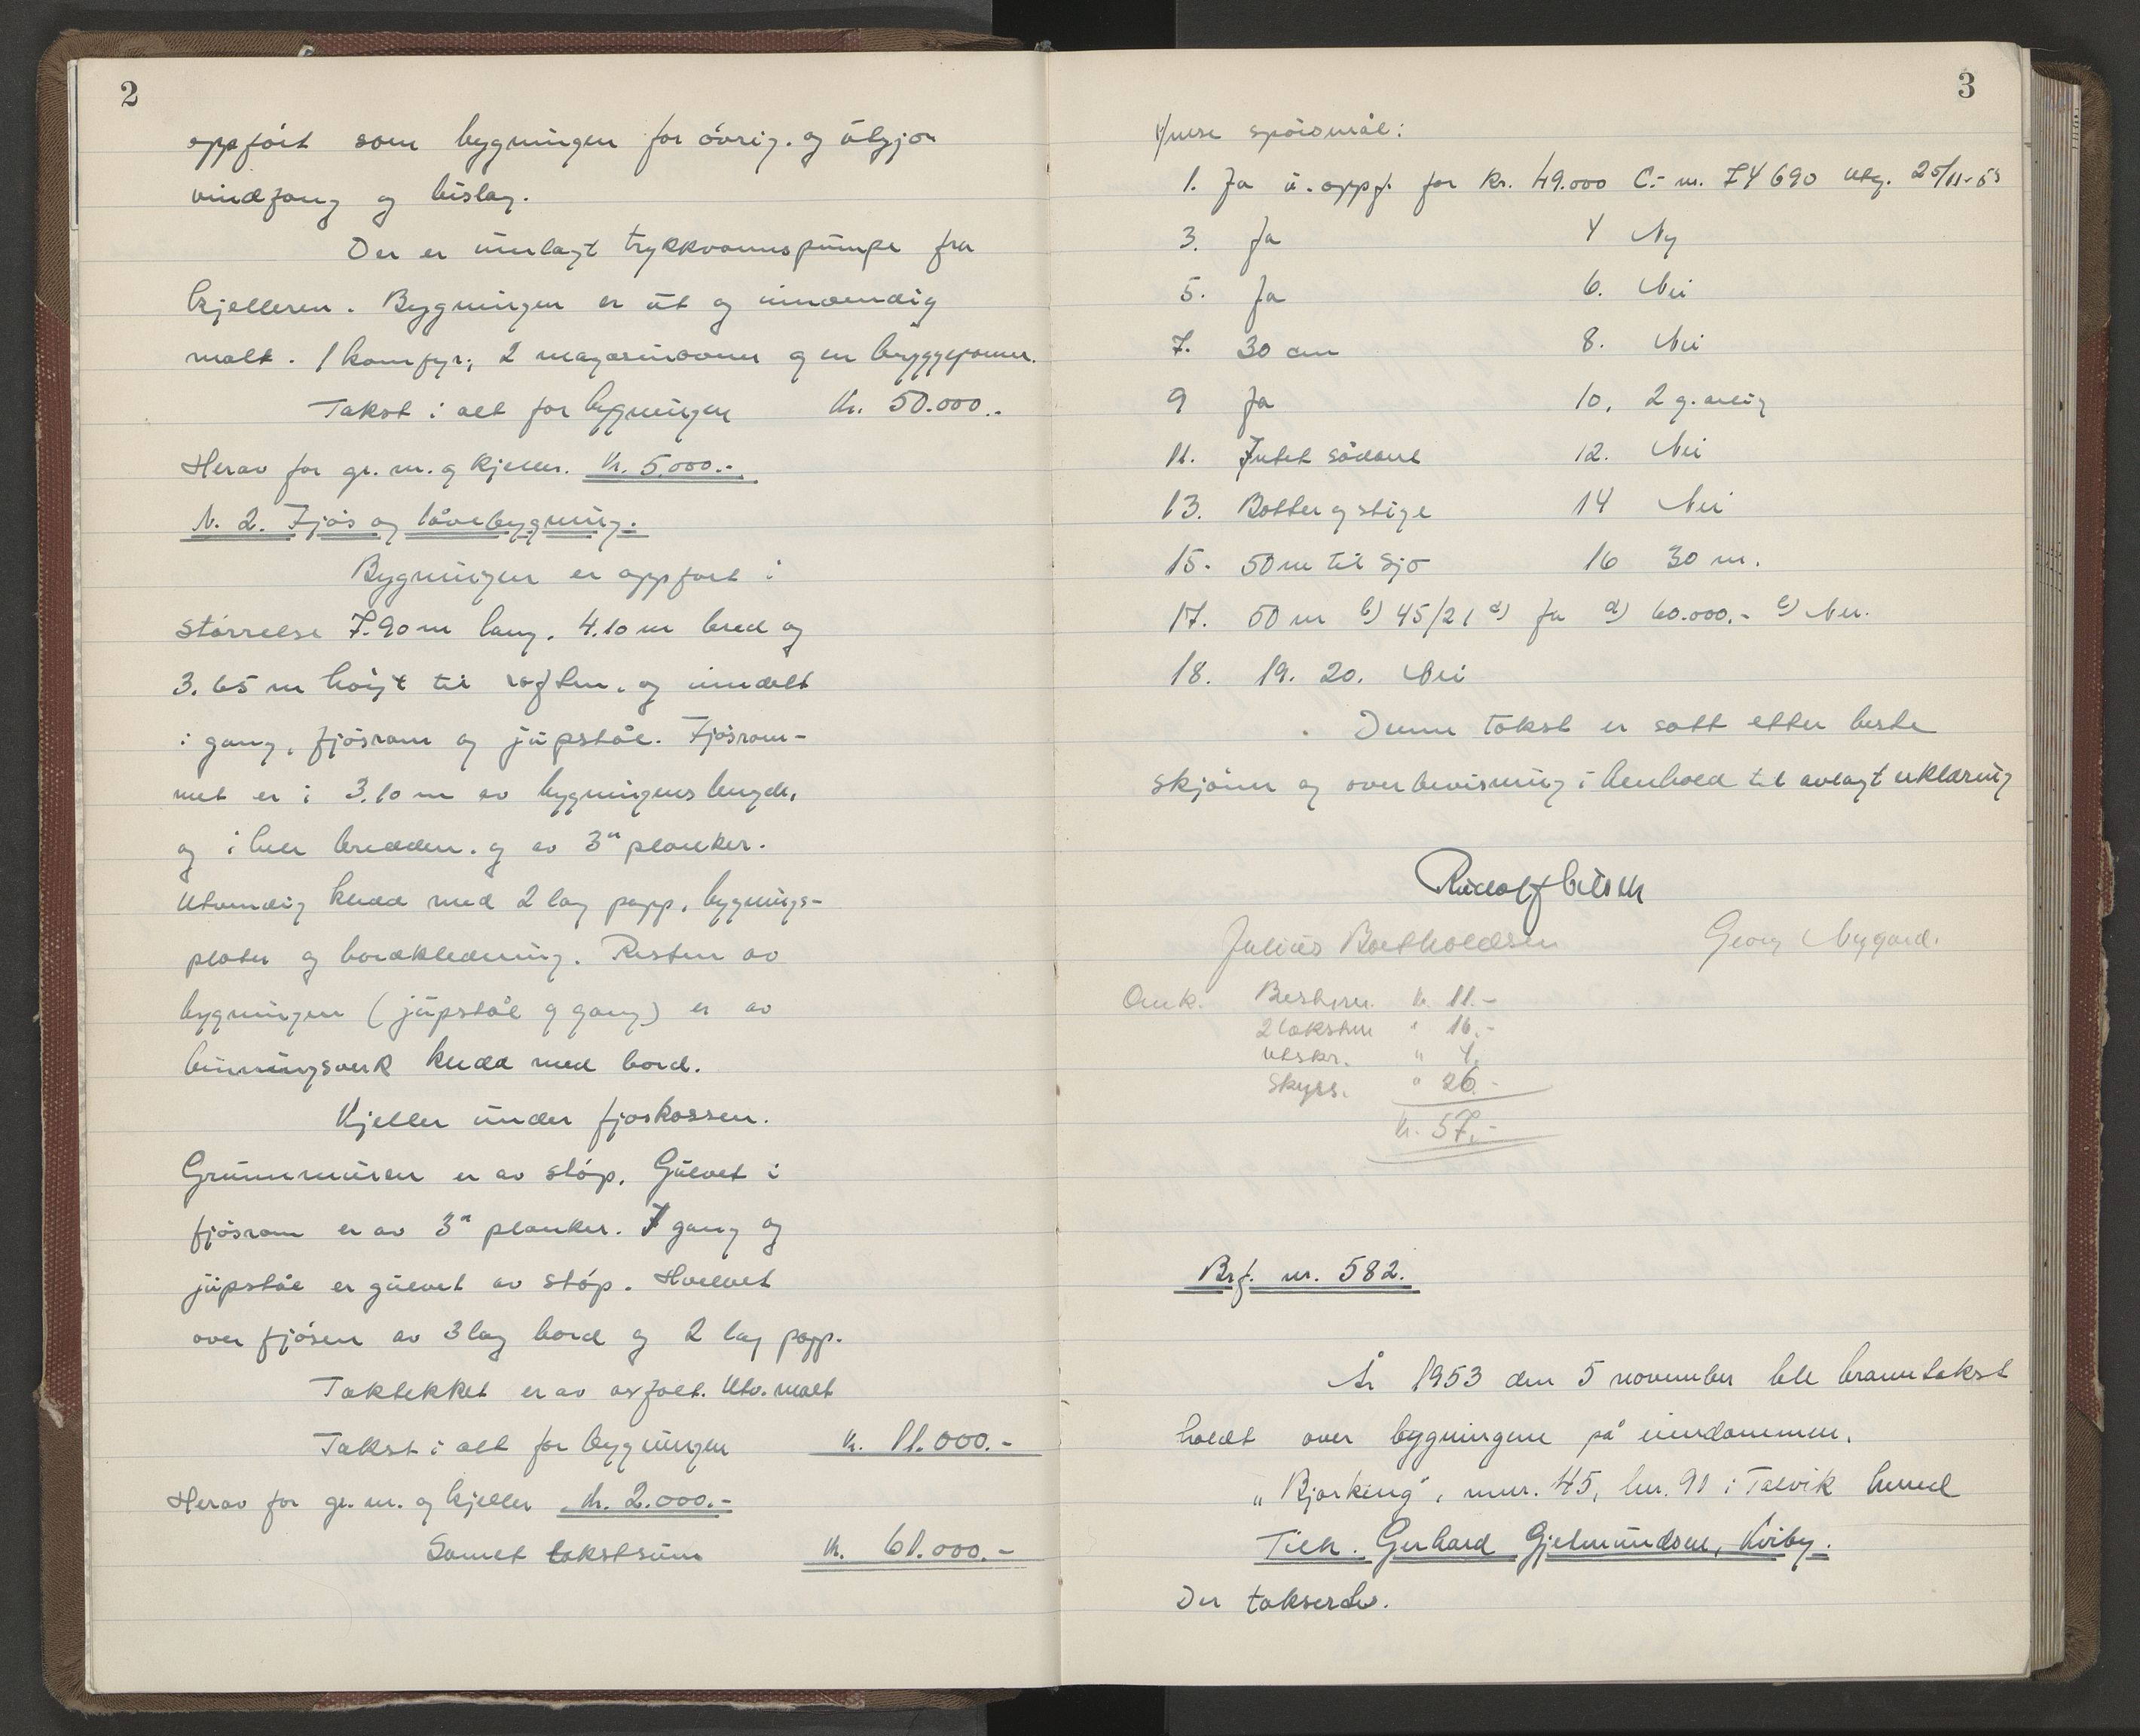 2
oppført som bygningen for øvrig. og utgjør
vindfang og bislag.
Der er innlagt trykkvannspumpe fra
kjelleren. Bygningen er ut og innvendig
malt. 1 komfyr, 2 magasinovner og en bryggepanne.
Takst i alt for bygningen kr. 50.000.-
Herav for gr. m. og kjeller. kr. 5.000.-
N. 2. Fjøs og låvebygning.
Bygningen er oppført i
størrelse 7.90 m lang, 4.10 m bred og
3.65 m høyt til raften, og inndelt
i gang, fjøsrom og jupstål. Fjøsrom-
met er i 3.10 m av bygningens lengde,
og i hele bredden. og av 3" planker.
Utvendig kledd med 2 lag papp, bygnings-
plater og bordkledning. Resten av
bygningen (jupstål og gang) er av
binningsverk kledd med bord.
Kjeller under fjøskassen.
Grunnmuren er av støp. Gulvet i
fjøsrom er av 3" planker. I gang og
jupstål er gulvet av støp. Hvelvet
over fjøsen av 3 lag bord og 2 lag papp.
Taktekket er av asfalt. Utv. malt
Takst i alt for bygningen kr. 11.000.-
Herav for gr. m. og kjeller kr. 2.000.-
Samlet takstsum kr. 61.000.-
3
spørsmål:
1. Ja u. oppf. for kr. 49.000 C.- nr. 74690 utg. 25/11-53
3. Ja 4 Ny
5. Ja 6. Nei
7. 30 cm 8. Nei
9 Ja 10. 2 g. årlig
11. Intet sådant 12. Nei
13. Bøtter og stige 14 Nei
15. 50 m til sjø 16 30 m.
17. 50 m b) 45/21 c) Ja d) 60.000.- e) Nei.
18. 19. 20. Nei
Denne takst er satt etter beste
skjønn og overbevisning i henhold til avlagt erklæring
Rudolf
Julius Bertholdsen Georg Nygård.
Omk. Bestyrer. kr. 11.-
2 takstm " 16.-
Utskr. " 4.
Skyss. " 26.-
kr. 57.-
Brf. nr. 582.
År 1953 den 5 november ble branntakst
holdt over bygningene på eiendommen.
"Bjørkeng", mnr. 45, bnr. 91 i Talvik herred
Tilh. Gerhard Gjetmundsen, Kviby.
Der takserdes.